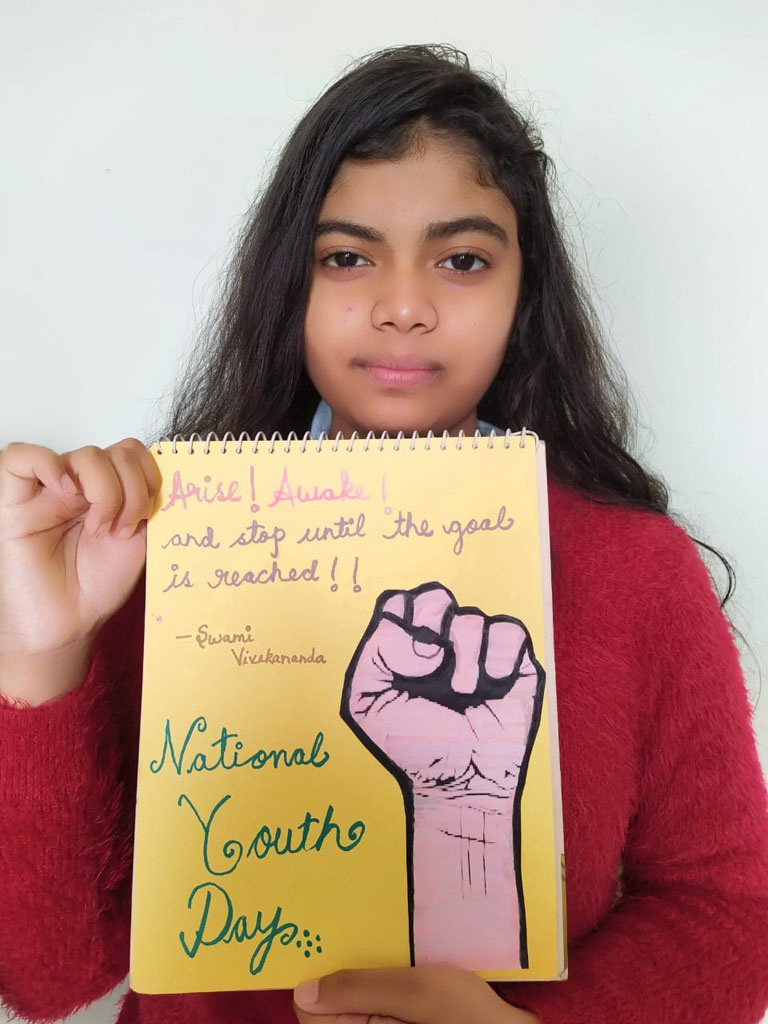 Arise! Awake!
and stop until the goal
is reached!!
— Swami
Vivekananda
National
Youth
Day